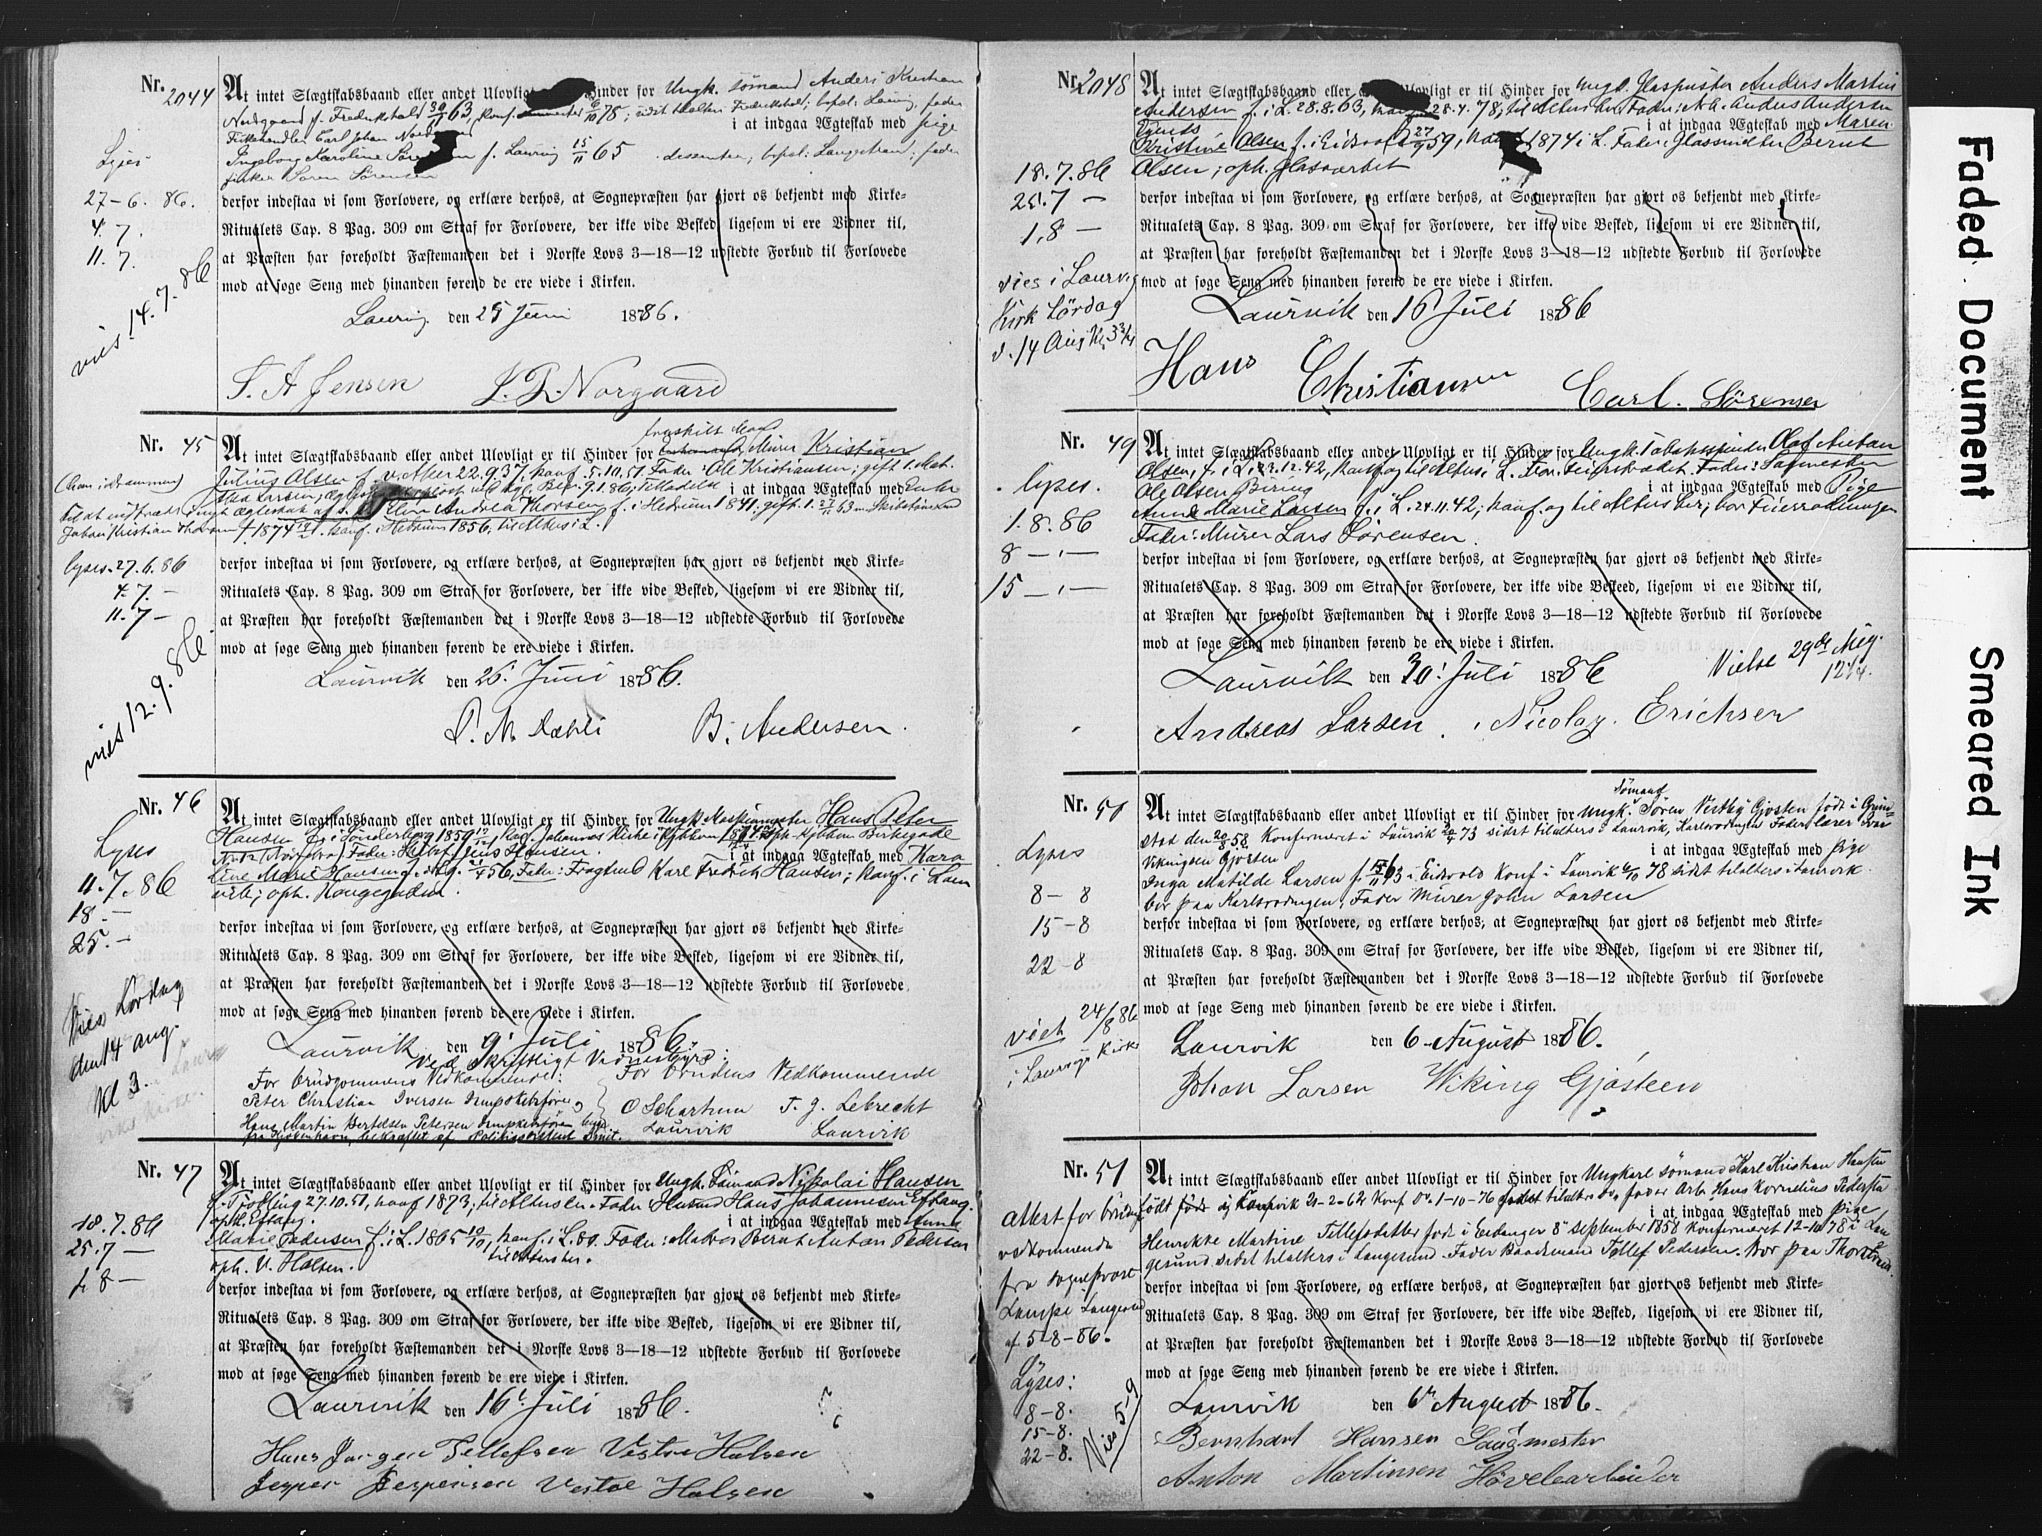 Nr. 2044
At intet Slægtskabsbaand eller andet Ulovligt Hinder for Ungk. sømand Anders Kristian
Nordgaard f. Frederikshald 30/11 63, Konf. 6/10 78; Fredrikshald; Laurvig, fader
Fiskehandler Carl Johan i at indgaa Ægteskab med Pige
Ingeborg Karoline f. Laurvig 15/11 65 Langestrand; fader
fisker Søren Sørensen
derfor indestaa vi som Forlovere, og erklære derhos, at Sognepræsten har gjort os bekjendt med Kirke-
Ritualets Cap. 8 Pag. 309 om Straf for Forlovere, der ikke vide Besked, ligesom vi ere Vidner til,
at Præsten har foreholdt Fæstemanden det i Norske Lovs 3—18—12 udstedte Forbud til Forlovede
mod at søge Seng med hinanden førend de ere viede i Kirken.
Laurvig den 25 Juni 1886.
T. A. Jensen Norgaard
Lyses
27-6. 86.
4. 7.
11. 7.
vies 14. 7. 86
Nr. 45
fraskilt Mand
At intet Slægtskabsbaand eller andet Ulovligt er til Hinder for Murer Kristian
Julius Olsen f. v. Aker 22.9.37, konf. 5.10.51. Fader: Ole Kristiansen; gift 1.
i at indgaa Ægteskab med Enke
Andrea Thorsen f. i Hedrum 1841, gift 1.
Johan Kristian Thorsen † 1874 konf. i Hedrum 1856, til Alters i L.
derfor indestaa vi som Forlovere, og erklære derhos, at Sognepræsten har gjort os bekjendt med Kirke-
Ritualets Cap. 8 Pag. 309 om Straf for Forlovere, der ikke vide Besked, ligesom vi ere Vidner til,
at Præsten har foreholdt Fæstemanden det i Norske Lovs 3—18—12 udstedte Forbud til Forlovede
mod at søge Seng med hinanden førend de ere viede i Kirken.
Laurvik den 26. Juni 1886.
B. Andersen.
lyses. 27.6.86
4.7. —
11.7 —
vies 12. 9. 86
Nr. 46
At intet Slægtskabsbaand eller andet Ulovligt er til Hinder for Ungk. Maskinmester Hans Peter
Hansen f. i Sønderborg 1859 konf. Johannes Kirke i Kjøbhvn oph. Kjøbhvn Birkegade
Fader: Jens Hansen. i at indgaa Ægteskab med Kara
Line Marie Hansen Fader: Fragtmd Karl Fredrik Hansen; konf. i Laur
vik; oph. Kongegaden.
derfor indestaa vi som Forlovere, og erklære derhos, at Sognepræsten har gjort os bekjendt med Kirke-
Ritualets Cap. 8 Pag. 309 om Straf for Forlovere, der ikke vide Besked, ligesom vi ere Vidner til,
at Præsten har foreholdt Fæstemanden det i Norske Lovs 3—18—12 udstedte Forbud til Forlovede
mod at søge Seng med hinanden førend de ere viede i Kirken.
Laurvik den 9. Juli 1886.
Ved Skriftligt Vidnesbyrd.
For brudgommens Vedkommende: For brudens Vedkommende
Peter Christian Iversen O Schartum T. J. Lebrecht
Hans Martin Bertelsen Petersen Laurvik Laurvik
fra Kjøbenhavn, bekræftet af
Lyses
11. 7. 86
18. —
25. —
Vies Lørdag
den 14 aug.
Kl 3.
Nr. 47
At intet Slægtskabsbaand eller andet Ulovligt er til Hinder for Ungk. Sømand Nikolai Hansen
f. Tjølling 27.10.51, konf 1873; Fader Husmd Hans Johannesen Eftang.
oph. Eftang. i at indgaa Ægteskab med Anne
Marie Pedersen f. i L. 1865 konf. i L. 80. Fader: Matros Bernt Anton Pedersen
oph. V. Halsen.
derfor indestaa vi som Forlovere, og erklære derhos, at Sognepræsten har gjort os bekjendt med Kirke-
Ritualets Cap. 8 Pag. 309 om Straf for Forlovere, der ikke vide Besked, ligesom vi ere Vidner til,
at Præsten har foreholdt Fæstemanden det i Norske Lovs 3—18—12 udstedte Forbud til Forlovede
mod at søge Seng med hinanden førend de ere viede i Kirken.
Laurvik den 16. Juli 1886.
Hans Jørgen Tellefsen Vestre Halsen
Jesper Jespersen Vestre Halsen
18.7.86
25.7 —
1. 8 —
Nr. 2048
At intet Slægtskabsbaand eller Ulovligt er til Hinder for Ungk. Glaspuster Anders Martin
Andersen f. i L. 28.8.63, 28.4.78, til Alters her Fader: Arb. Anders Andersen
i at indgaa Ægteskab med Maren
Kristine Olsen f. i Eidsvold 59, 1874 i L. Fader: Glassmelter Bernt
Olsen; oph. Glasværket
derfor indestaa vi som Forlovere, og erklære derhos, at Sognepræsten har gjort os bekjendt med Kirke-
Ritualets Cap. 8 Pag. 309 om Straf for Forlovere, der ikke vide Besked, ligesom vi ere Vidner til,
at Præsten har foreholdt Fæstemanden det i Norske Lovs 3—18—12 udstedte Forbud til Forlovede
mod at søge Seng med hinanden førend de ere viede i Kirken.
Laurvik den 16 Juli 1886
Hans Christiansen Carl. Sørensen
18.7.86
25.7 —
1.8 —
vies i Laurvig
Kirk Lørdag
d. 14 Aug
Nr. 49
At intet Slægtskabsbaand eller andet Ulovligt er til Hinder for Ungk. Tobaksspinder Olaf Anton
Olsen, f. i L. 23.12.42, konf og til Alters i L. Fader:
Ole Olsen Böring i at indgaa Ægteskab med Pige
Anne Marie Larsen f. i L. 24.11.42; konf. og til Alters her; bor
Fader: Murer Lars Sørensen.
derfor indestaa vi som Forlovere, og erklære derhos, at Sognepræsten har gjort os bekjendt med Kirke-
Ritualets Cap. 8 Pag. 309 om Straf for Forlovere, der ikke vide Besked, ligesom vi ere Vidner til,
at Præsten har foreholdt Fæstemanden det i Norske Lovs 3—18—12 udstedte Forbud til Forlovede
mod at søge Seng med hinanden førend de ere viede i Kirken.
Laurvik den 30. Juli 1886
Vielse 29de Aug.
Andreas Larsen. Nicolay. Erichsen
lyses.
1.8.86
8 — " —
15 — " —
Nr. 50
Sømand
At intet Slægtskabsbaand eller andet Ulovligt er til Hinder for Ungk. Søren Gjosten født i Grim
stad den 20/8 58 Konfirmeret i Laurvik 20/4 73 sidst tilalters i Laurvik, Karlsrødningen Fader lærer
Vikingsen Gjosten i at indgaa Ægteskab med Pige
Inga Matilde Larsen f. 63 i Eidsvold Konf i Laurvik 6/10 78 sidst tilalters i Laurvik
bor paa Karlsrødningen, Fader Murer John Larsen
derfor indestaa vi som Forlovere, og erklære derhos, at Sognepræsten har gjort os bekjendt med Kirke-
Ritualets Cap. 8 Pag. 309 om Straf for Forlovere, der ikke vide Besked, ligesom vi ere Vidner til,
at Præsten har foreholdt Fæstemanden det i Norske Lovs 3—18—12 udstedte Forbud til Forlovede
mod at søge Seng med hinanden førend de ere viede i Kirken.
Laurvik den 6. August 1886.
Johan Larsen Wiking Gjøsteen
Lyses
8 - 8
15 - 8
22 - 8
viet 24/8 86
i Laurvigs Kirke
Nr. 51
At intet Slægtskabsbaand eller andet Ulovligt er til Hinder for Ungkarl sømand Karl Kristian Hansen
født i Laurvik 21-2-62 Konf 1-10-76 tilalters fader Arb. Hans Kornelius Pedersen
i at indgaa Ægteskab med Pige
Henrikke Martine Tellefsdatter født i Eidanger 8de september 1858 Konfirmeret 12-10 78 i Lan
gesund sidst tilalters i Langesund. Fader Baadsmand Tollef Pedersen. Bor paa
derfor indestaa vi som Forlovere, og erklære derhos, at Sognepræsten har gjort os bekjendt med Kirke-
Ritualets Cap. 8 Pag. 309 om Straf for Forlovere, der ikke vide Besked, ligesom vi ere Vidner til,
at Præsten har foreholdt Fæstemanden det i Norske Lovs 3—18—12 udstedte Forbud til Forlovede
mod at søge Seng med hinanden førend de ere viede i Kirken.
Laurvik den 6te August 1886.
Bernhard Hansen Saugmester
Anton Martinsen Høvelearbeider
attest for bruden
vedkommende
fra sogneprest
Lampe Langesund
af 5-8-86.
Lyses:
8-8.
15-8.
22-8.
Vies 5-9
Faded Document
Smeared Ink